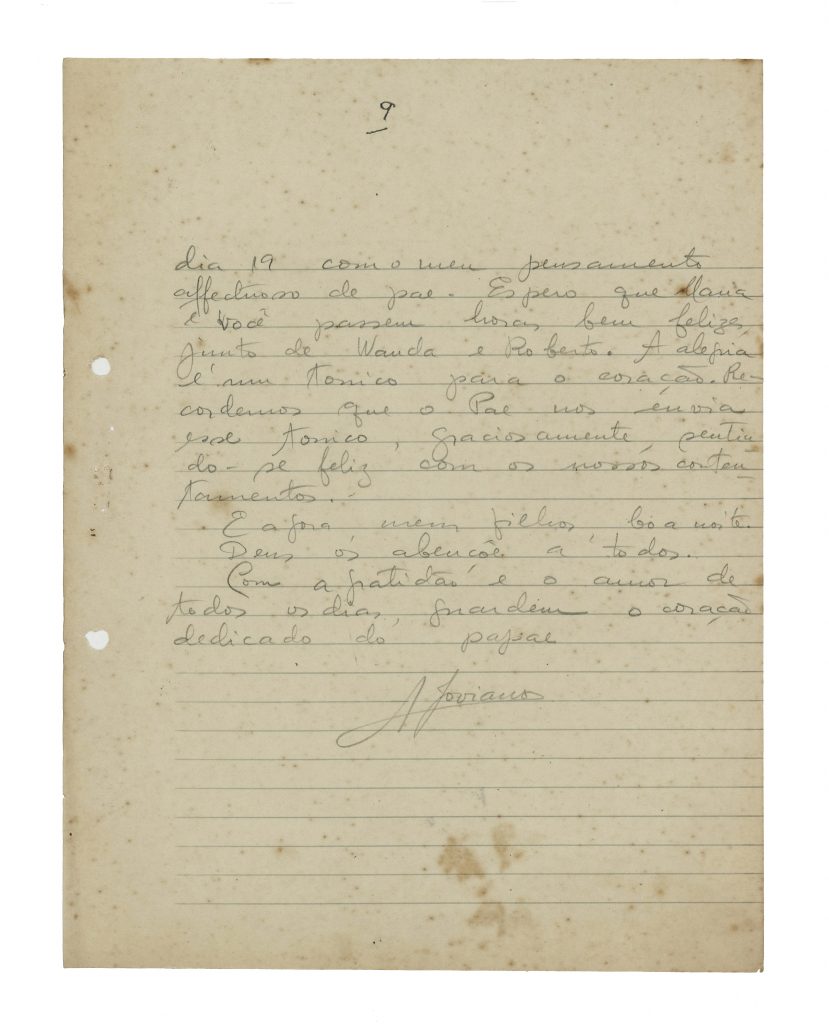 9
dia 19 com o meu pensamento
affectuoso de pae. Espero que Maria
e você passem horas bem felizes,
junto de Wanda e Roberto. A alegria
é um tonico para o coração. Re-
cordemos que o Pae nos envia
esse tonico, graciosamente, sentin
do-se feliz com os nossos conten-
tamentos.-
E agora meus filhos, boa noite.
Deus os abençôe a todos.
Com a gratidão e o amor de
todos os dias, guardem o coração
dedicado do papae
A Joviano